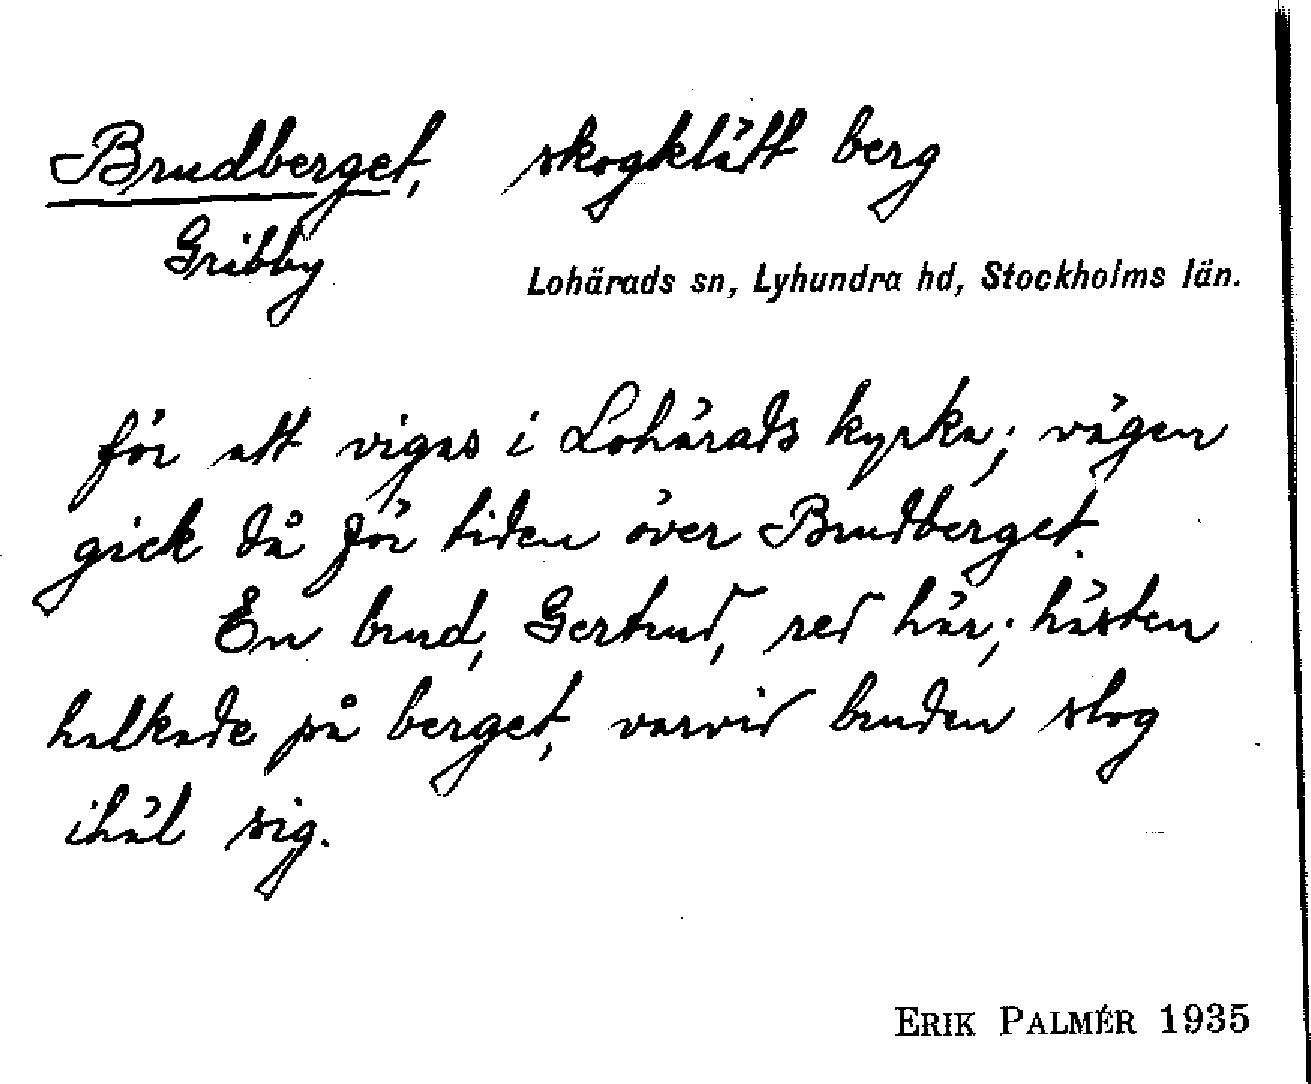 Brudberget, skogklätt berg
Gribby
Lohärads sn, Lyhundra hd, Stockholms län.
för att vigas i Lohärads kyrka; vägen
gick då för tiden över Brudberget.
En brud, Gertrud, red här; hästen
halkade på berget, varvid bruden slog
ihäl sig.
ERIK PALMÉR 1935